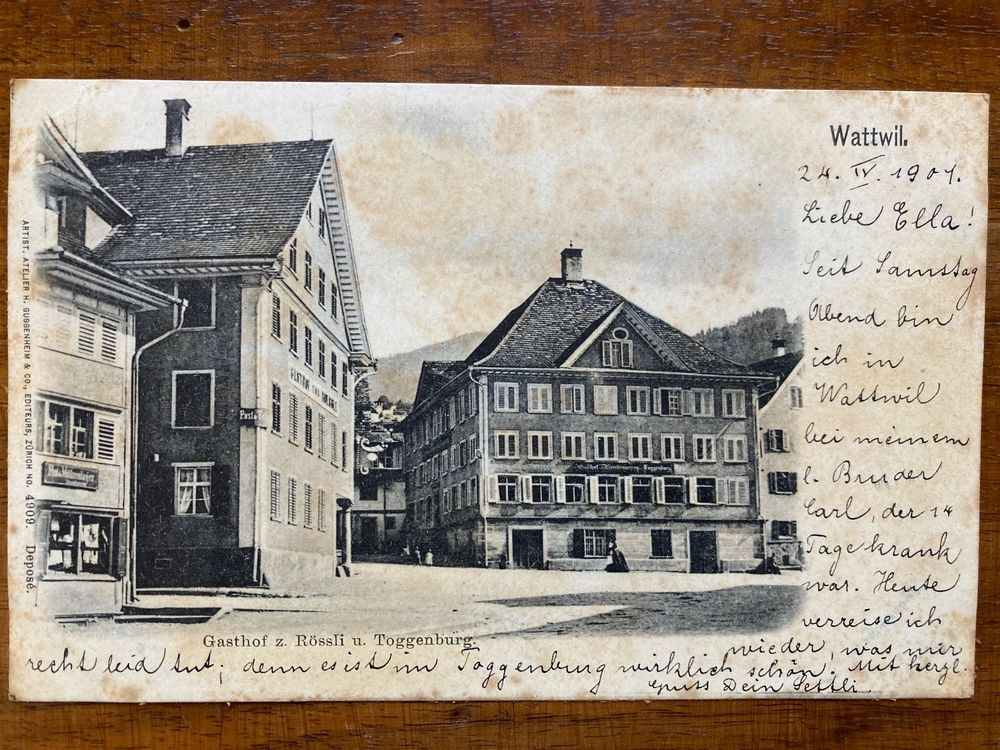 Wattwil.
24. IV. 1901.
Liebe Ella!
Seit Samstag
Abend bin
ich in
Wattwil
bei meinem
l. Bruder
Carl, der 14
Tage krank
war. Heute
verreise ich
wieder, was mir
recht leid tut; denn es ist im Toggenburg wirklich schön. Mit herzl.
Gruss Dein Settli.
Gasthof z. Rössli u. Toggenburg.
ARTIST. ATELIER H. GUGGENHEIM & CO., EDITEURS, ZÜRICH NO. 4909. Deposé.
Post